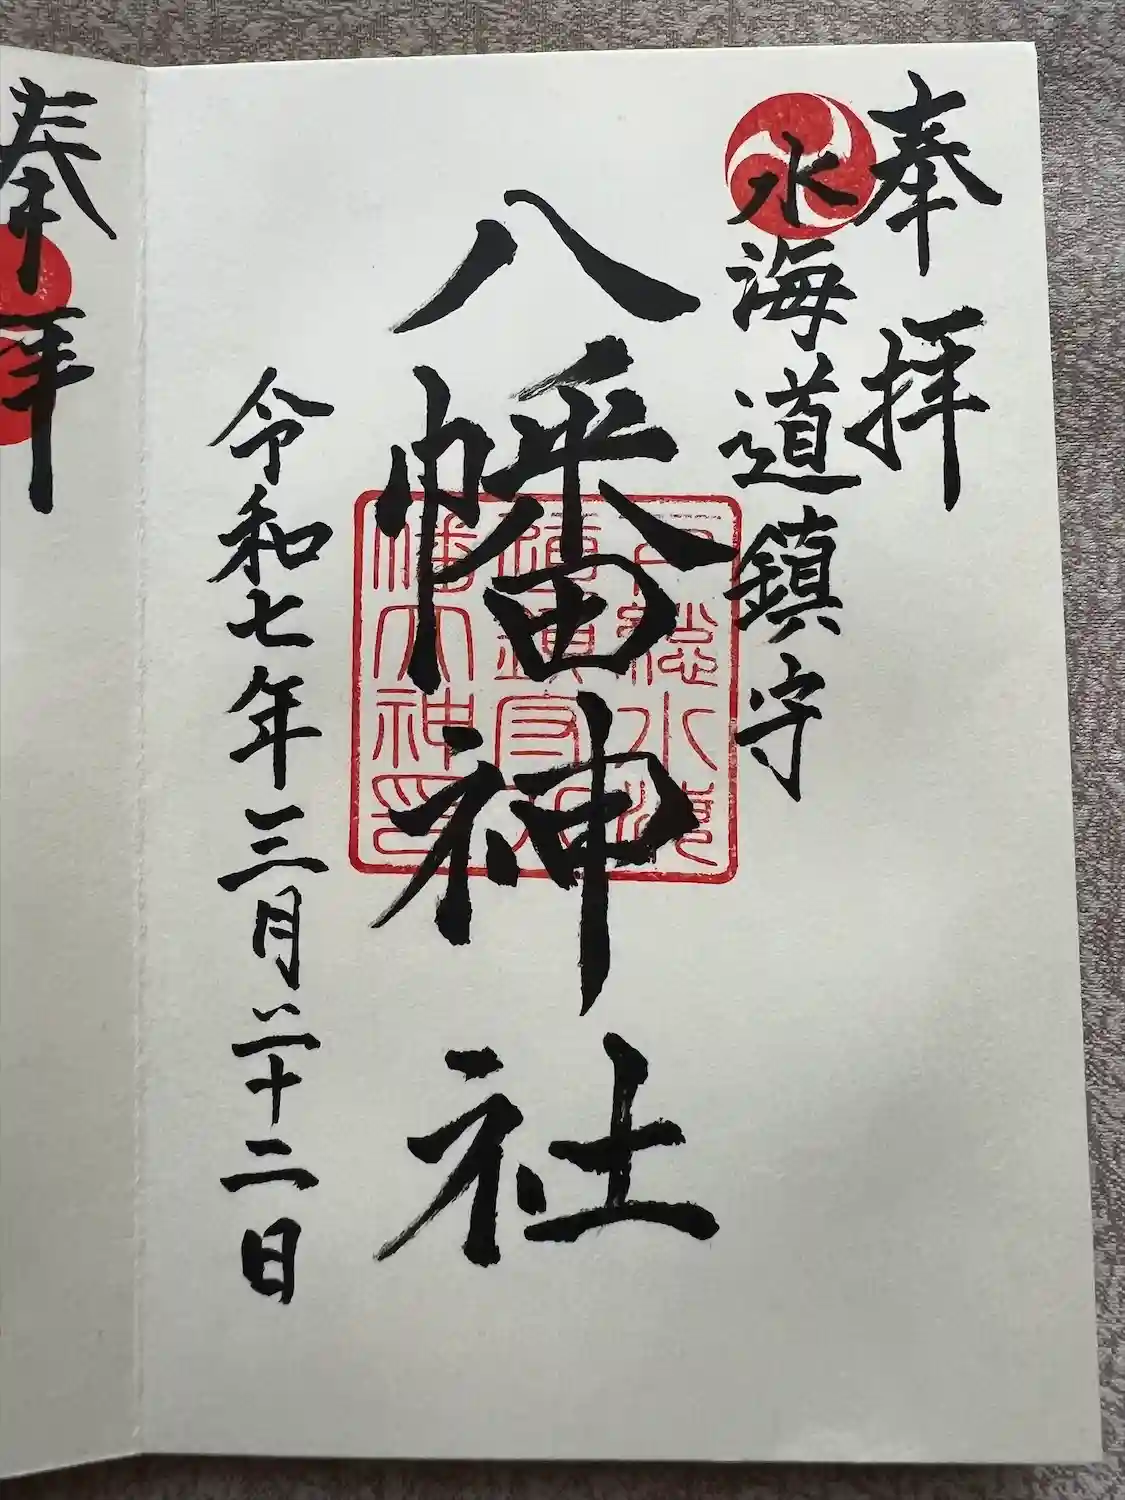 奉拝
水海道鎮守
八幡神社
令和七年三月二十二日
奉拝